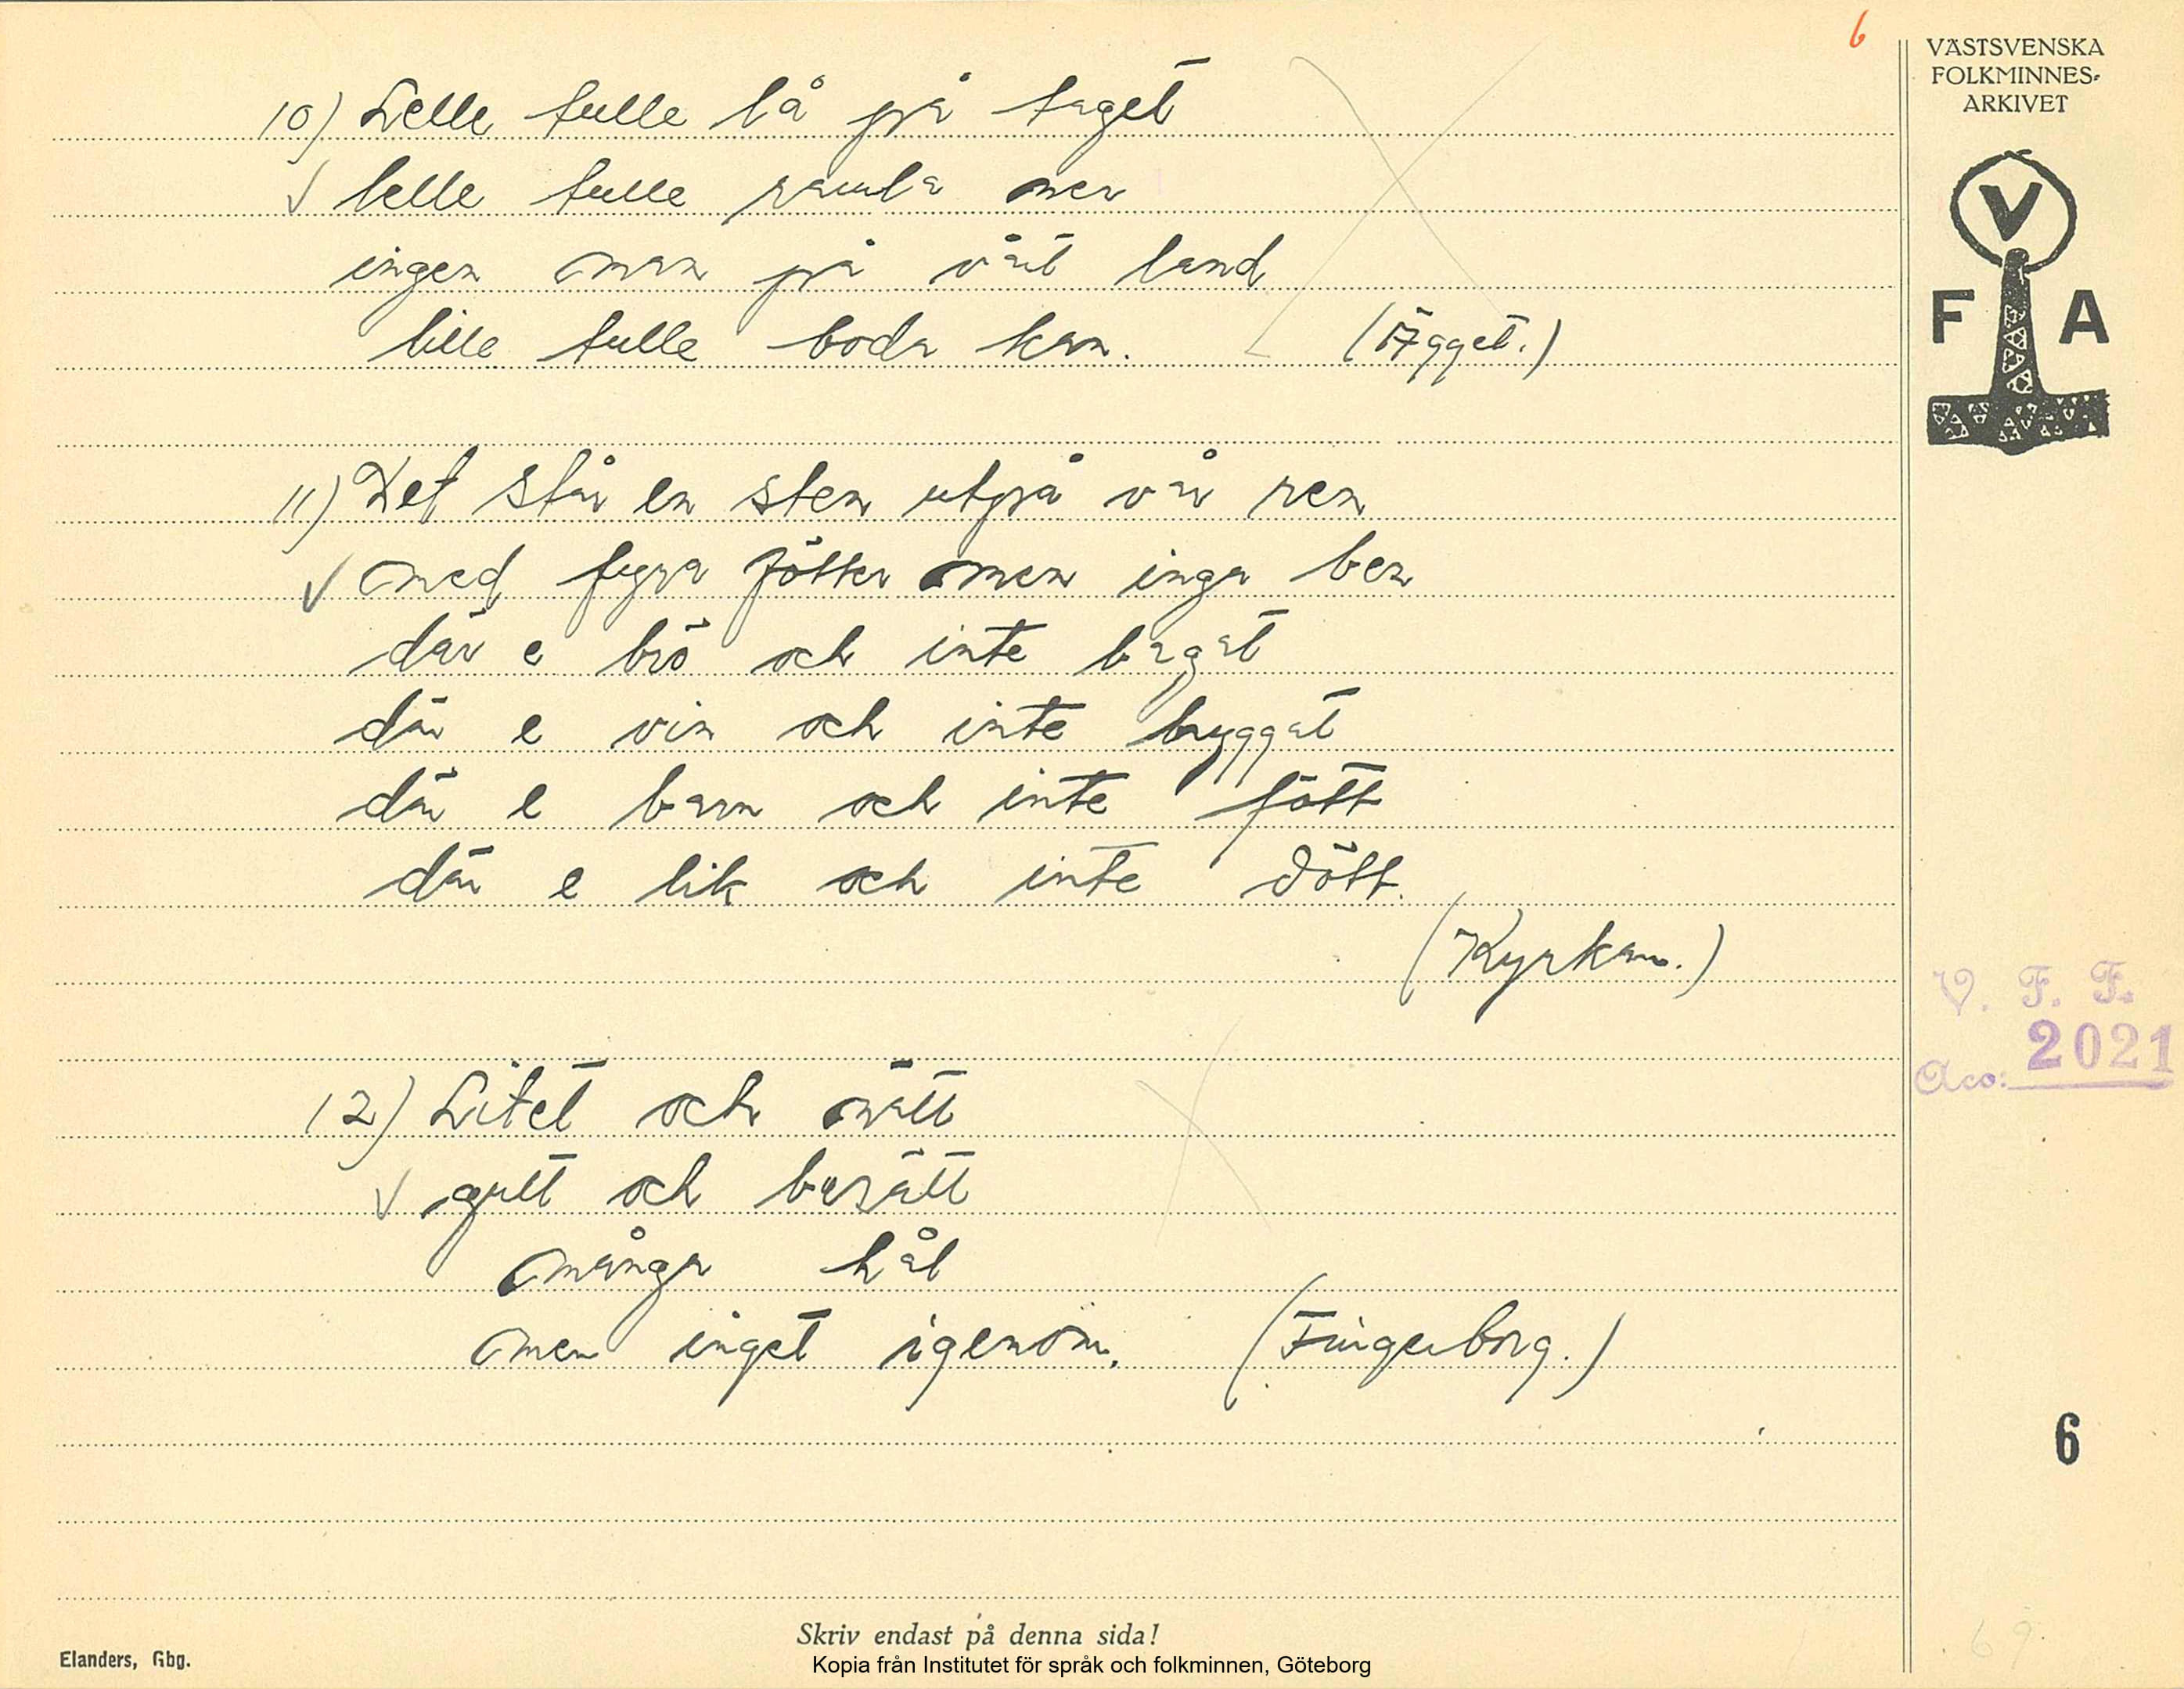 6
VÄSTSVENSKA
FOLKMINNES-
ARKIVET
V
F A
10) Lelle tulle lå på taget
lelle tulle ramla ner
ingen man på vårt land
lille tulle boda kan. (Ägget.)
11) Det står en sten utpå vår ren
med fyra fötter men inga ben
där e brö och inte bagat
där e vin och inte bryggat
där e barn och inte fött
där e lik och inte dött.
(Kyrkan.)
V. F. F.
Acc: 2021
12) Litet och nätt
gutt och besätt
många hål
men inget igenom. (Fingerborg.)
6
Skriv endast på denna sida!
Elanders, Gbg.
Kopia från Institutet för språk och folkminnen, Göteborg
69